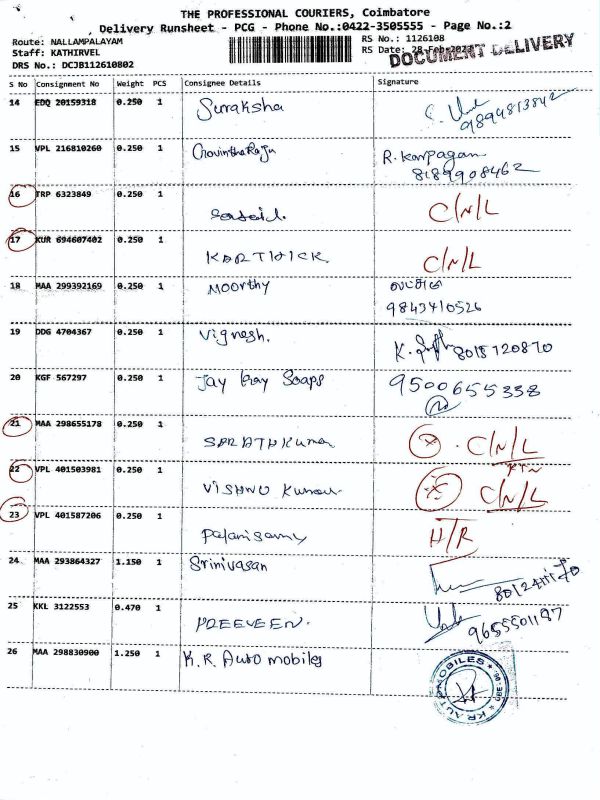 THE PROFESSIONAL COURIERS, Coimbatore
Delivery Runsheet - PCG - Phone No.:0422-3505555 - Page No.:2
Route: NALLAMPALAYAM
Staff: KATHIRVEL
DRS No.: DCJB112610802
RS No.: 1126108
RS Date: 28-Feb-2023
DOCUMENT DELIVERY
S No Consignment No Weight PCS Consignee Details Signature
14 EDQ 20159318 0.250 1 Suraksha
9894813842
15 VPL 216810260 0.250 1 GovinthaRaju R. Karpagam
8189908462
16 TRP 6323849 0.250 1 C/N/L
17 KUR 694607402 0.250 1 KARTHICK C/N/L
18 MAA 299392169 0.250 1 Moorthy
9843410526
19 DDG 4704367 0.250 1 Vignesh. 8015720870
20 KGF 567297 0.250 1 Jay Soaps 9500655338
21 MAA 298655178 0.250 1 SARATHKumar C/N/L
22 VPL 401503981 0.250 1 VISHNU Kumar C/N/L
23 VPL 401587206 0.250 1 Palanisamy H/R
24 MAA 293864327 1.150 1 Srinivasan
25 KKL 3122553 0.470 1 PREEVEEN. 9655501197
26 MAA 298830900 1.250 1 K.R. Auto mobiles